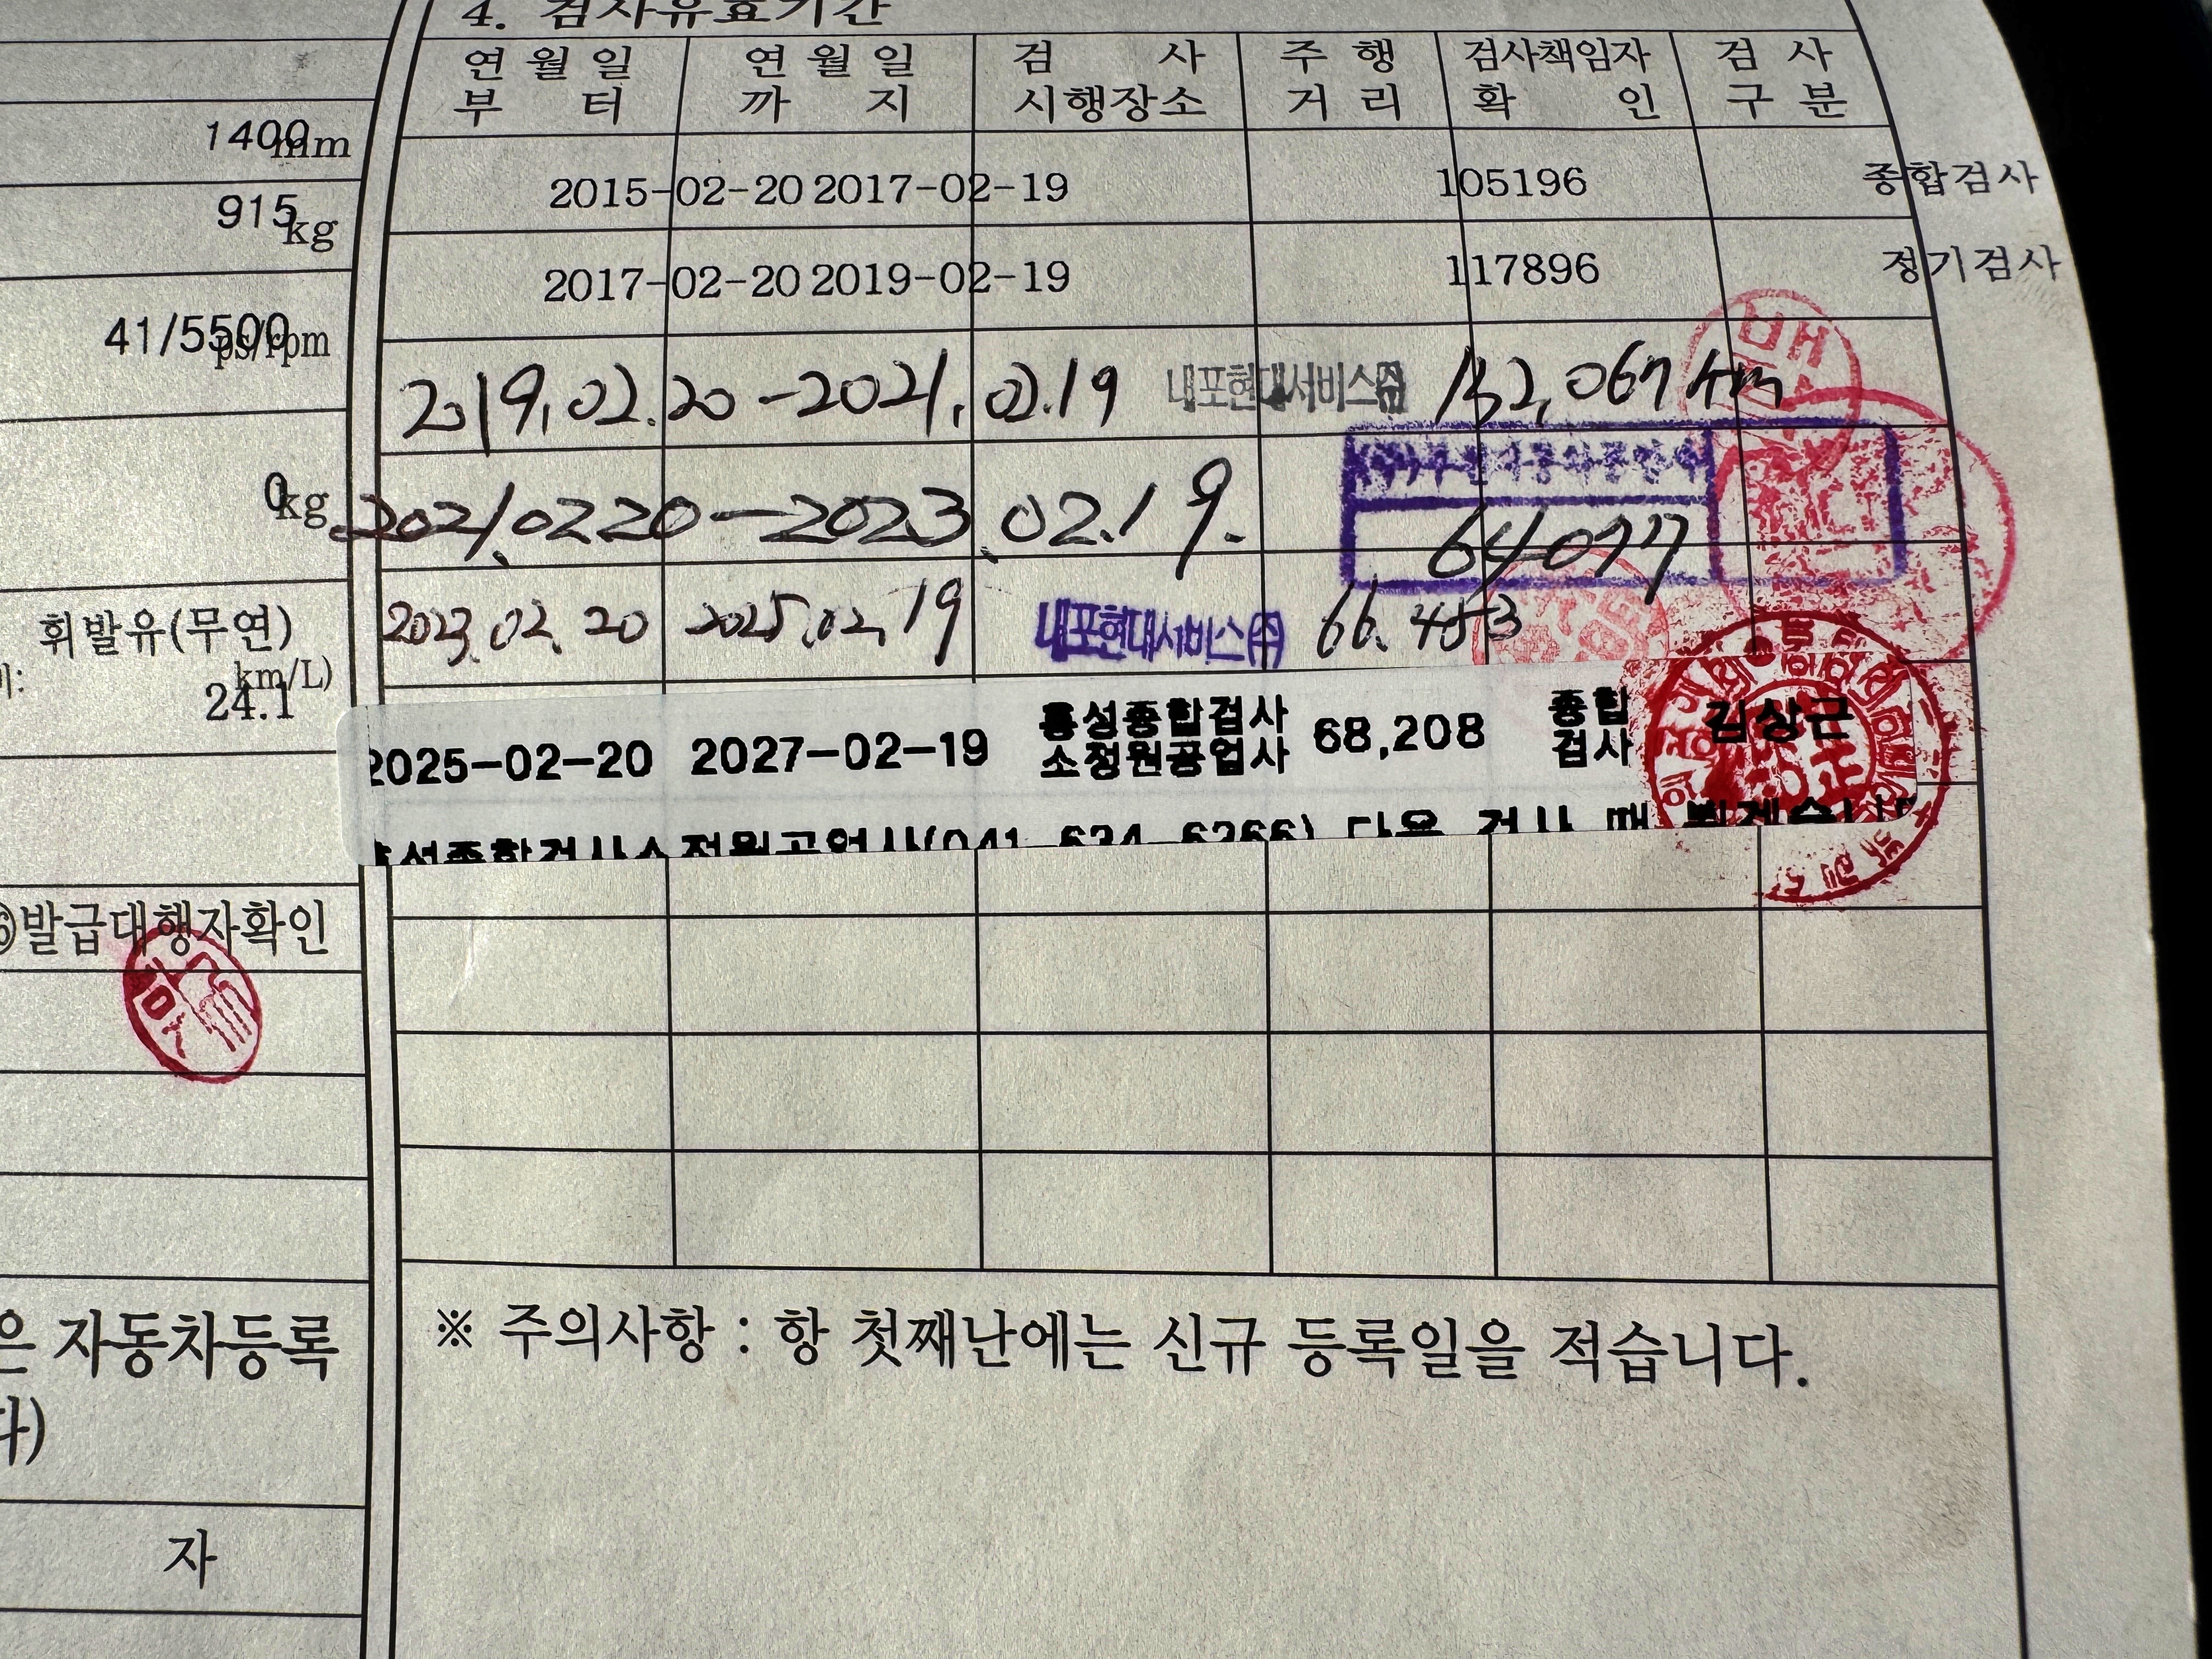 4. 검사유효기간
연월일부터 연월일까지 검사시행장소 주행거리 검사책임자확인 검사구분
2015-02-20 2017-02-19 105196 종합검사
2017-02-20 2019-02-19 117896 정기검사
2019.02.20 -2021.02.19 내포현대서비스㈜ 132,067km
2021.0220-2023.02.19. 64077
2023.02.20 2025.02.19 내포현대서비스㈜ 66.453
2025-02-20 2027-02-19 홍성종합검사소정원공업사 68,208 종합검사 김상근
홍성종합검사소정원공업사(041-634-6266) 다음 검사 때 뵙겠습니다
※ 주의사항 : 항 첫째난에는 신규 등록일을 적습니다.
1400mm
915kg
41/5500ps/rpm
0kg
휘발유(무연)
km/L)
24.1
⑥발급대행자확인
은 자동차등록
다)
자